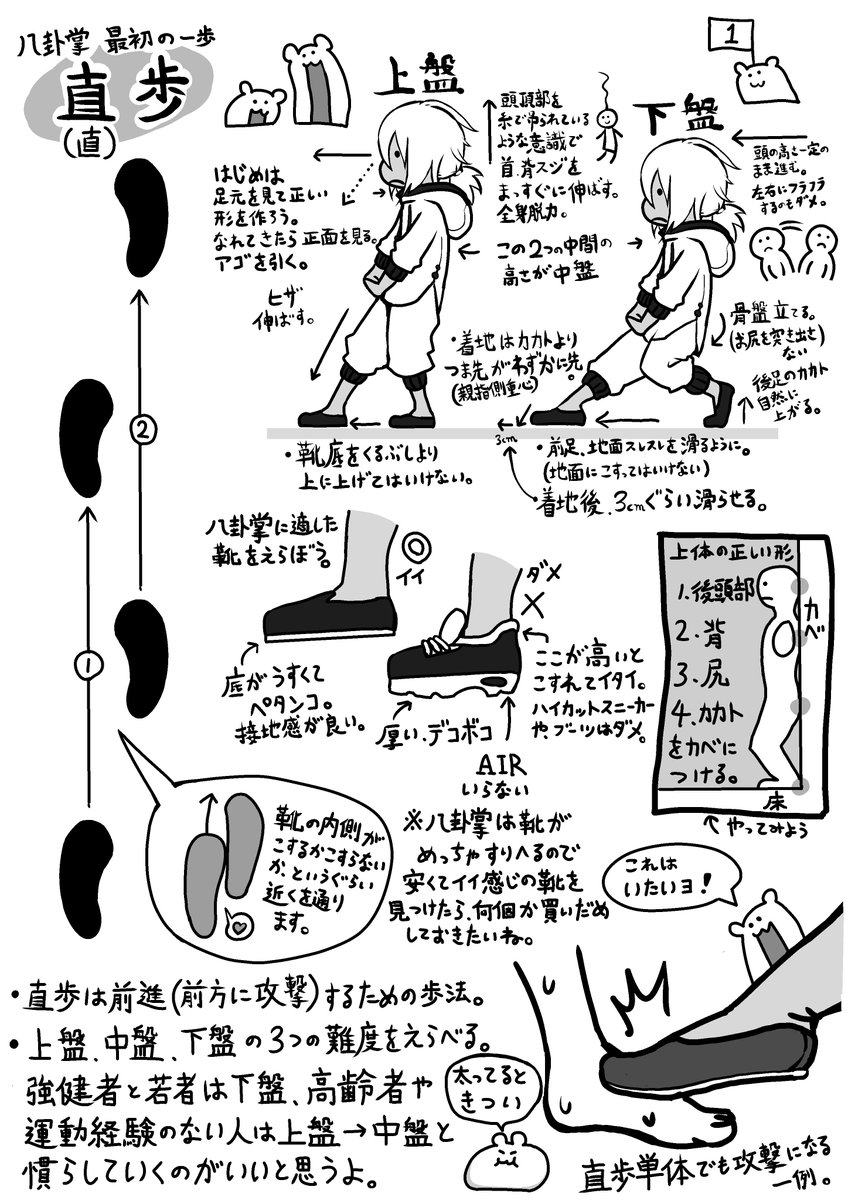 八卦掌 最初の一歩
直歩
(直)
1
上盤
下盤
頭頂部を
糸で吊られている
ような意識で
首、背スジを
まっすぐに伸ばす。
全身脱力。
頭の高さ一定の
まま進む。
左右にフラフラ
するのもダメ。
はじめは
足元を見て正しい
形を作ろう。
なれてきたら正面を見る。
アゴを引く。
この2つの中間の
高さが中盤
ヒザ
伸ばす。
・着地はカカトより
つま先がわずかに先。
(親指側重心)
骨盤立てる。
(お尻を突き出さ)
ない
後足のカカト
自然に
上がる。
3cm
・靴底をくるぶしより
上に上げてはいけない。
・前足、地面スレスレを滑るように。
(地面にこすってはいけない)
着地後、3cmぐらい滑らせる。
②
①
八卦掌に適した
靴をえらぼう。
◎
イイ
ダメ
×
底がうすくて
ペタンコ。
接地感が良い。
厚い、デコボコ
AIR
いらない
ここが高いと
こすれてイタイ。
ハイカットスニーカー
やブーツはダメ。
上体の正しい形
1.後頭部
2.背
3.尻
4.カカト
をカベに
つける。
カベ
床
やってみよう
靴の内側が
こするかこすらない
か、というぐらい
近くを通り
ます。
※八卦掌は靴が
めっちゃすりへるので
安くてイイ感じの靴を
見つけたら、何個か買いだめ
しておきたいね。
これは
いたいヨ!
・直歩は前進(前方に攻撃)するための歩法。
・上盤、中盤、下盤の3つの難度をえらべる。
強健者と若者は下盤、高齢者や
運動経験のない人は上盤→中盤と
慣らしていくのがいいと思うよ。
太ってると
きつい
直歩単体でも攻撃になる
一例。